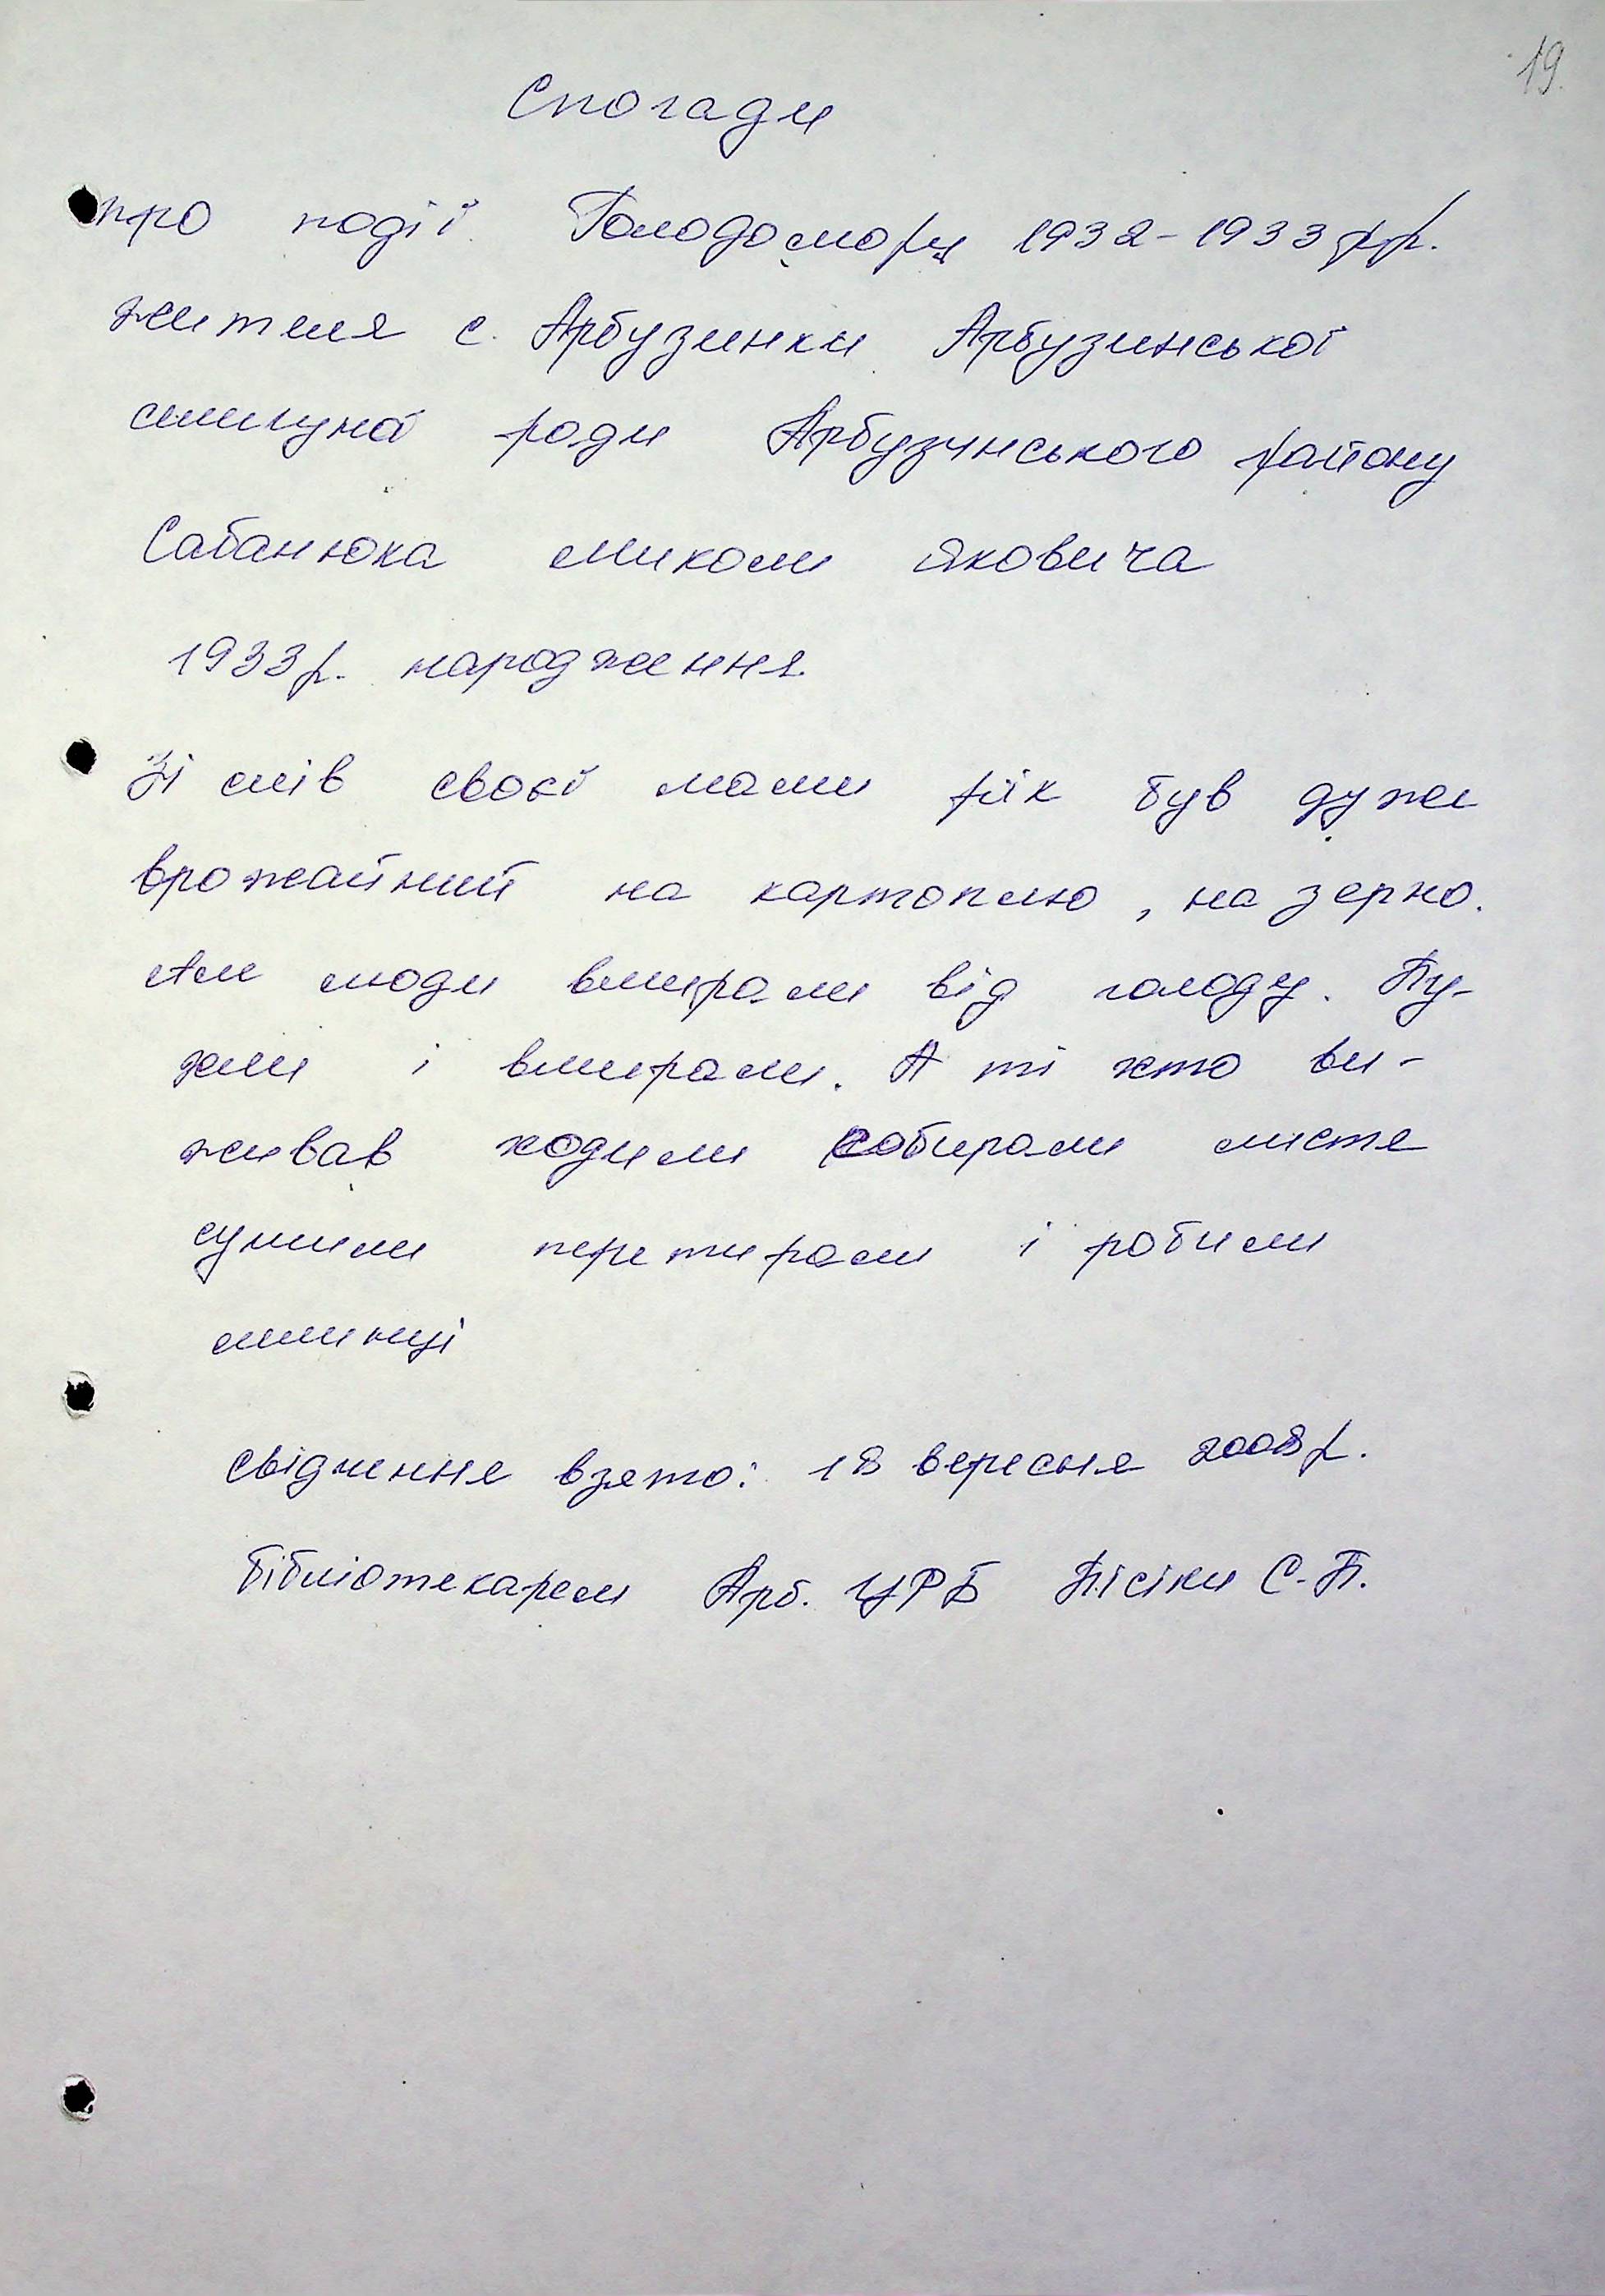 19.
Спогади
про події Голодомору 1932-1933 рр.
жителя с. Арбузинки Арбузинської
селищної ради Арбузинського району
Сабанюка Миколи Яковича
1933р. народження.
Зі слів своєї мами рік був дуже
врожайний на картоплю, на зерно.
Але люди вмирали від голоду. Пу-
хли і вмирали. А ті хто ви-
живав ходили собирали листя
сушили перетирали і робили
млинці
Свідчення взято: 18 вересня 2008р.
бібліотекарем Арб. ЦРБ С.П.